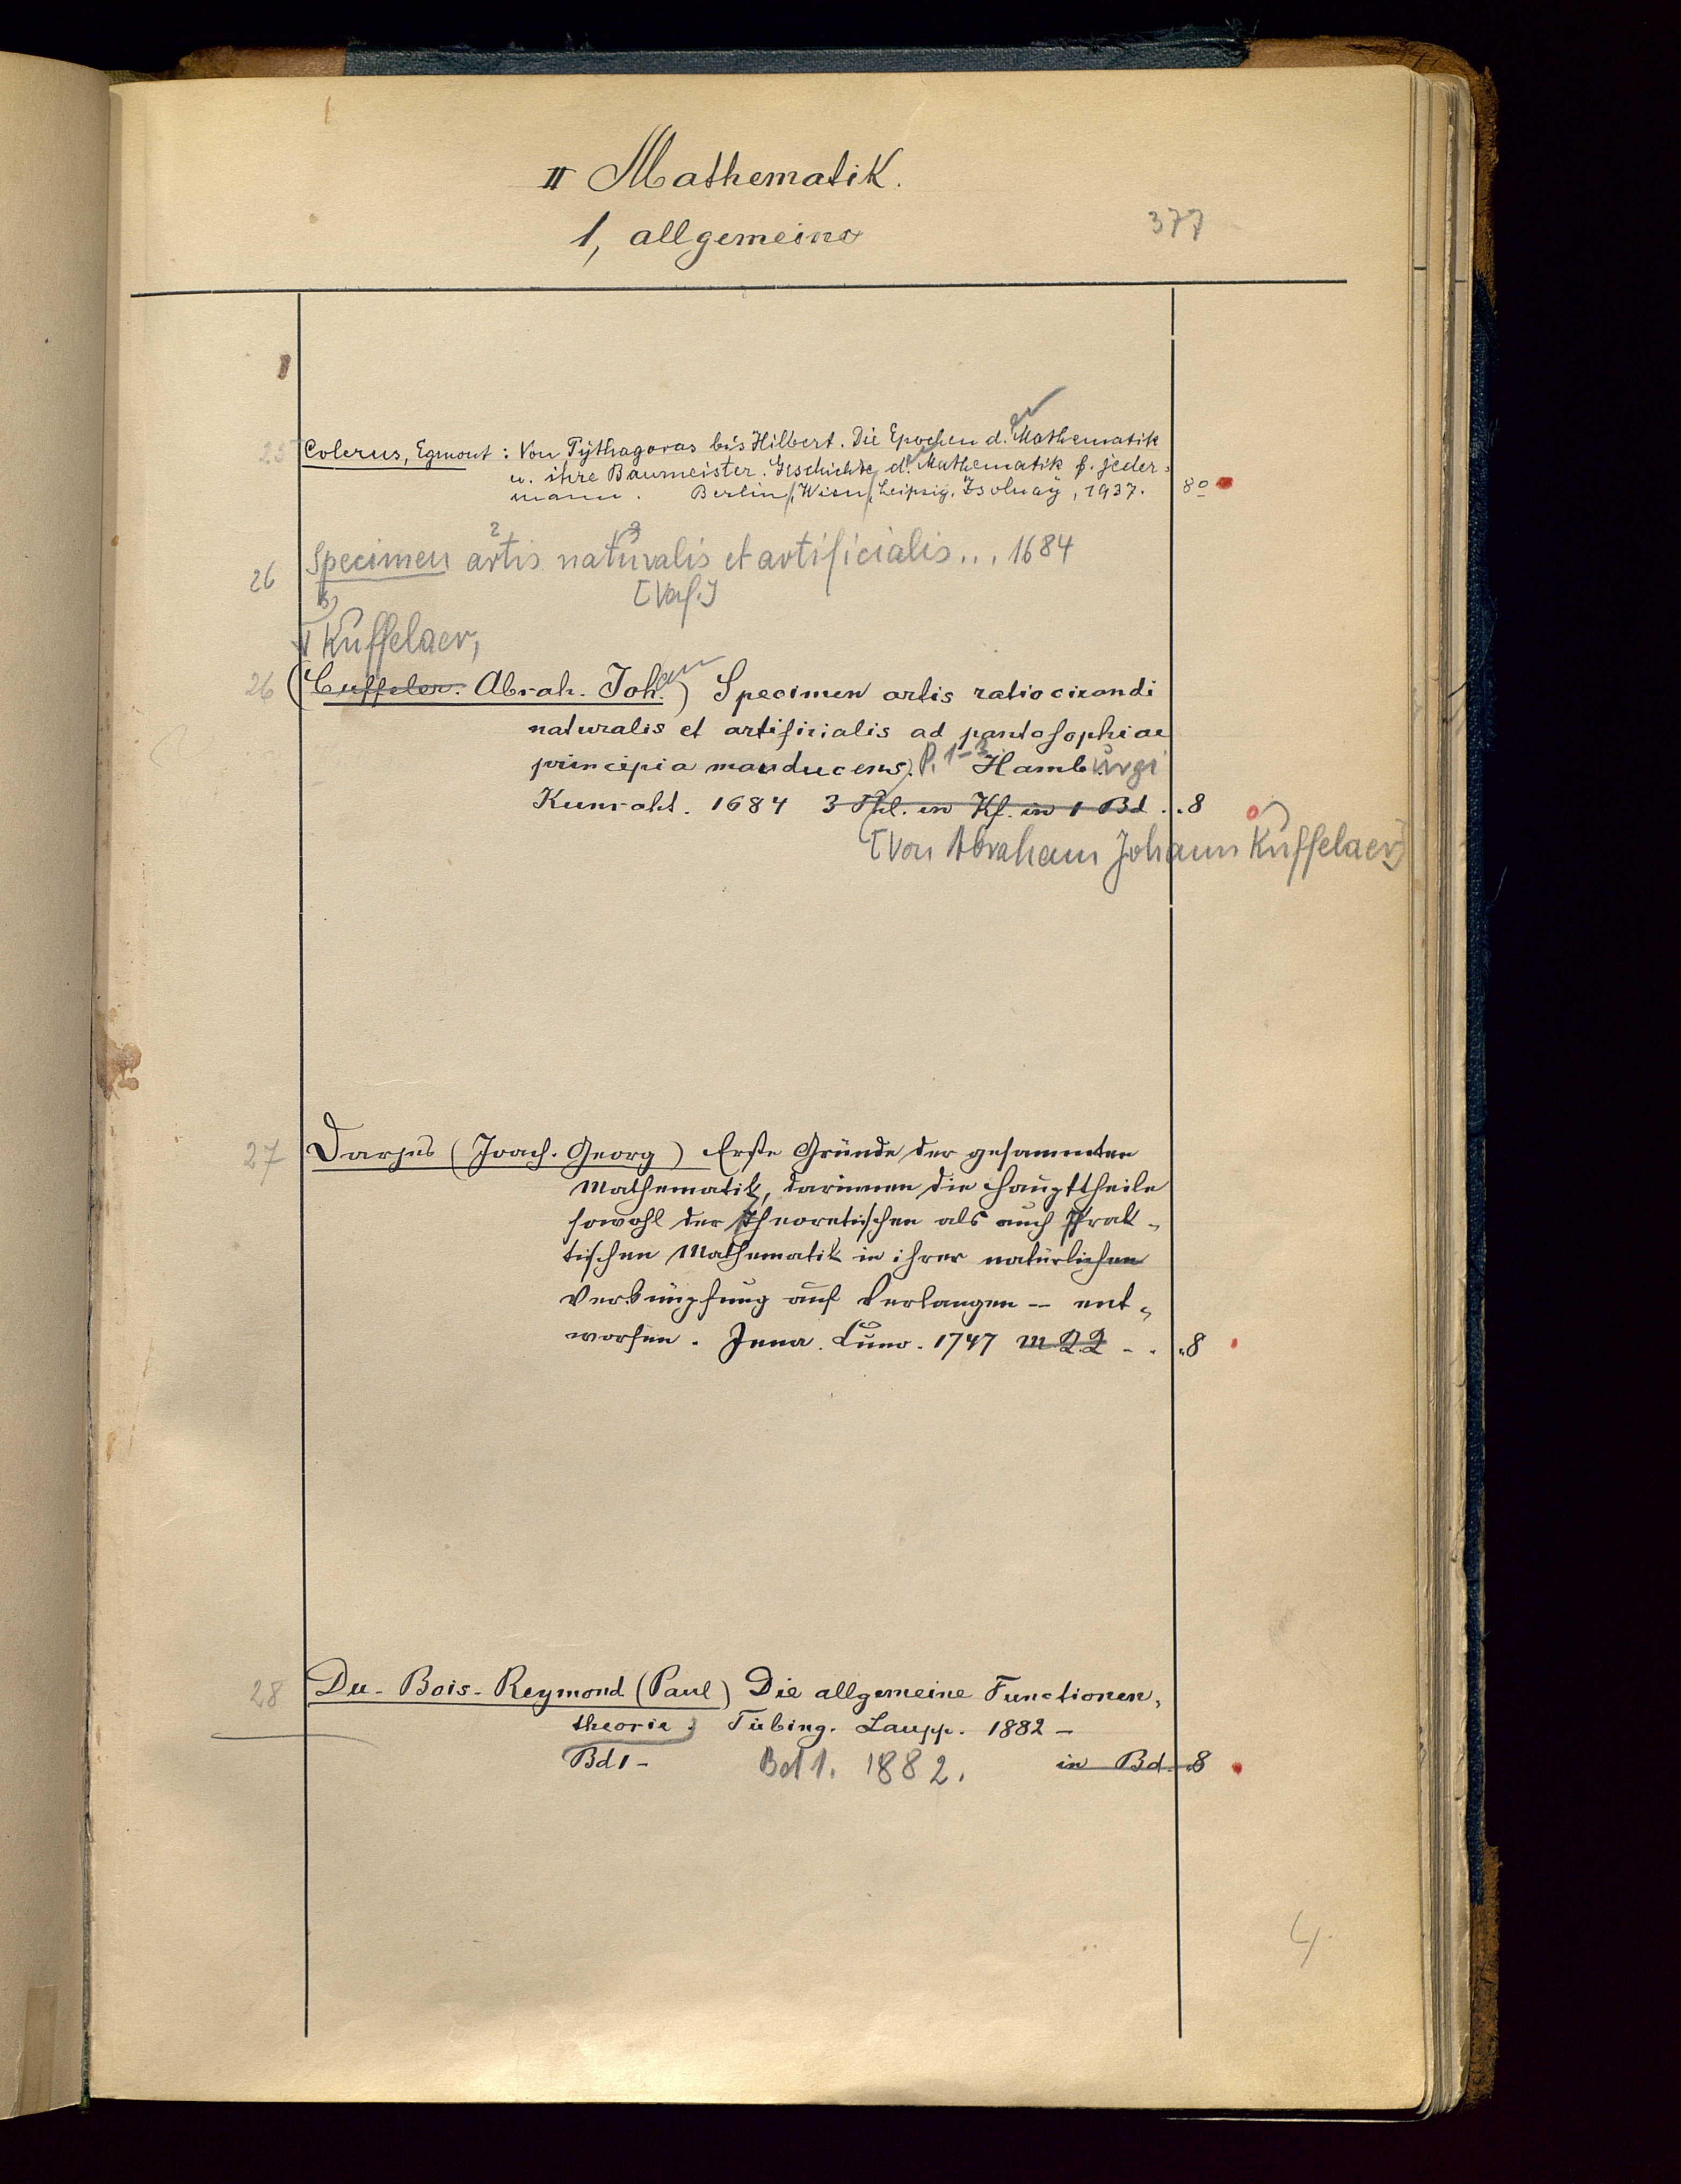 II Mathematik.
1, allgemeine
377
25 Colerus, Egmont: Von Pythagoras bis Hilbert. Die Epochen d. Mathematik
u. ihre Baumeister. Geschichte d. Mathematik f. jeder=
mann. Berlin, Wien, Leipzig, Zsolnay, 1937. 8º
26 Specimen artis naturalis et artificialis... 1684
[Verf.]
Kuffelaer,
26 (Cuffeler. Abrah. Joh.) Specimen artis ratiocinandi
naturalis et artificialis ad pantosophiae
principia manducens. P. 1-3 Hamburgi
Kunraht. 1684 3 Thl. in Kf. in 1 Bd. .8
[Von Abraham Johann Kuffelaer]
27 Darjes (Joach. Georg) Erste Gründe der gesammten
Mathematik, darinnen die Haupttheile
sowohl der theoretischen als auch prak-
tischen Mathematik in ihrer natürlichen
Verknüpfung auf Verlangen – ent-
worfen. Jena. Cuno. 1747 .8
28 Du-Bois-Reymond (Paul) Die allgemeine Functionen-
theorie. Tübing. Laupp. 1882 –
Bd 1 – Bd 1. 1882. in Bd. .8
4.